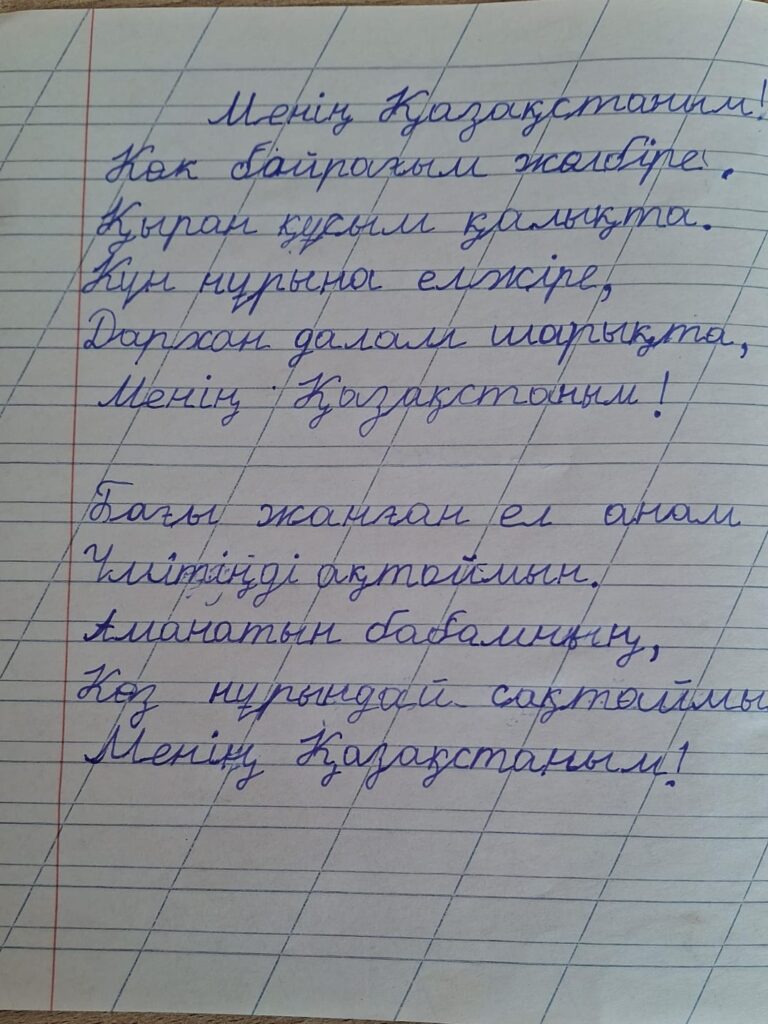 Менің Қазақстаным!
Көк байрағым желбіре.
Қыран құсым қалықта.
Күн нұрына елжіре,
Дархан далам шарықта,
Менің Қазақстаным!
Бағы жанған ел анам
Үмітіңді ақтаймын.
Аманатын бабамның,
Көз нұрындай сақтаймы
Менің Қазақстаным!